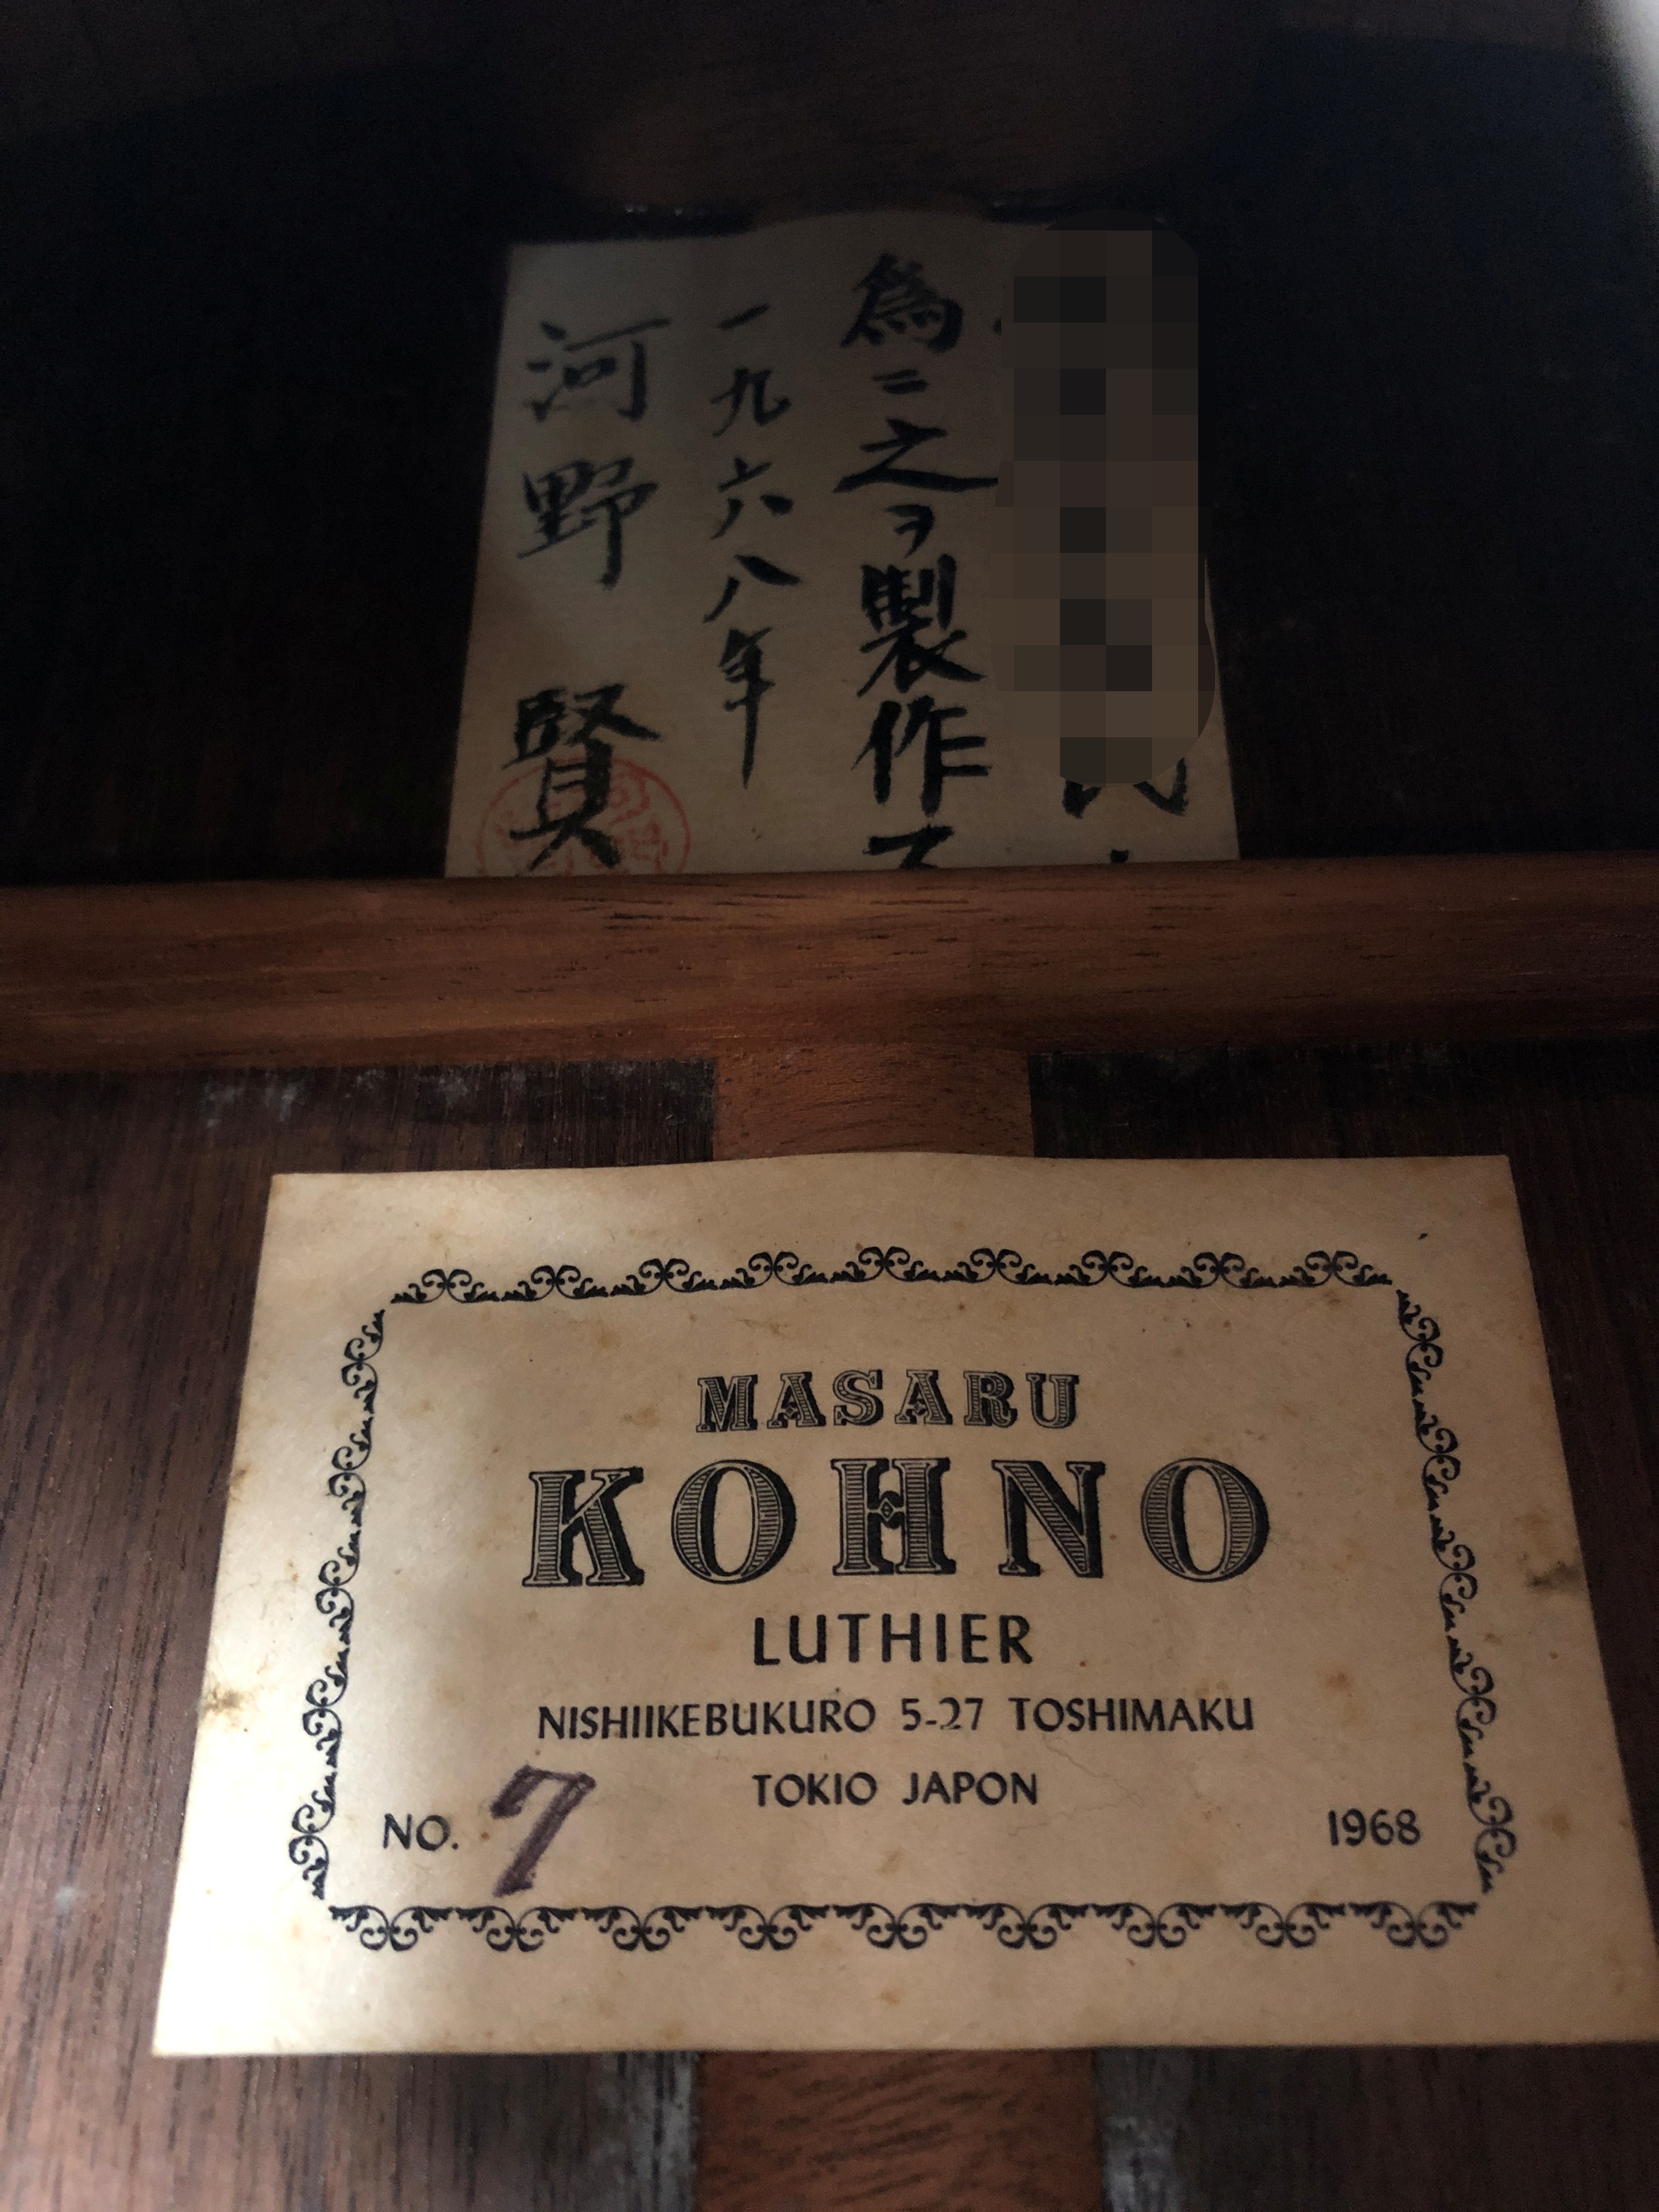 為ニ之ヲ製作ス
一九六八年
河野 賢
MASARU
KOHNO
LUTHIER
NISHIIKEBUKURO 5-27 TOSHIMAKU
TOKIO JAPON
NO. 7 1968